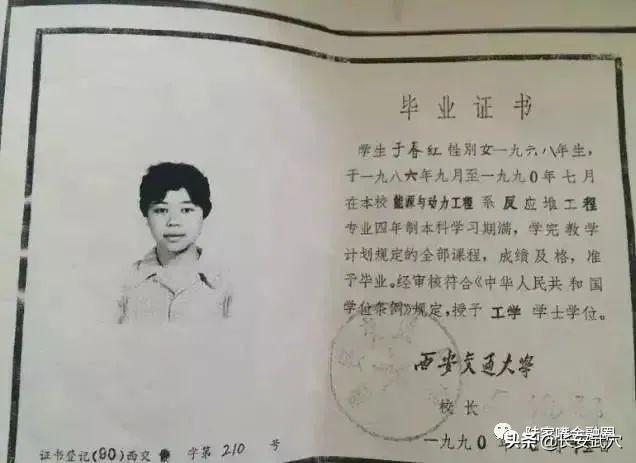 毕业证书
学生于春红性别女一九六八年生,
于一九八六年九月至一九九〇年七月
在本校能源与动力工程系反应堆工程
专业四年制本科学习期满,学完教学
计划规定的全部课程,成绩及格,准
予毕业。经审核符合《中华人民共和国
学位条例》规定,授予工学学士学位。
西安交通大学
校长
一九九〇年
证书登记(90)西交 字第210号
陆家嘴金融圈
头条@长安武穴